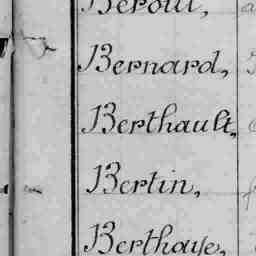 Béroul,
Bernard,
Berthault,
Bertin,
Berthaye,